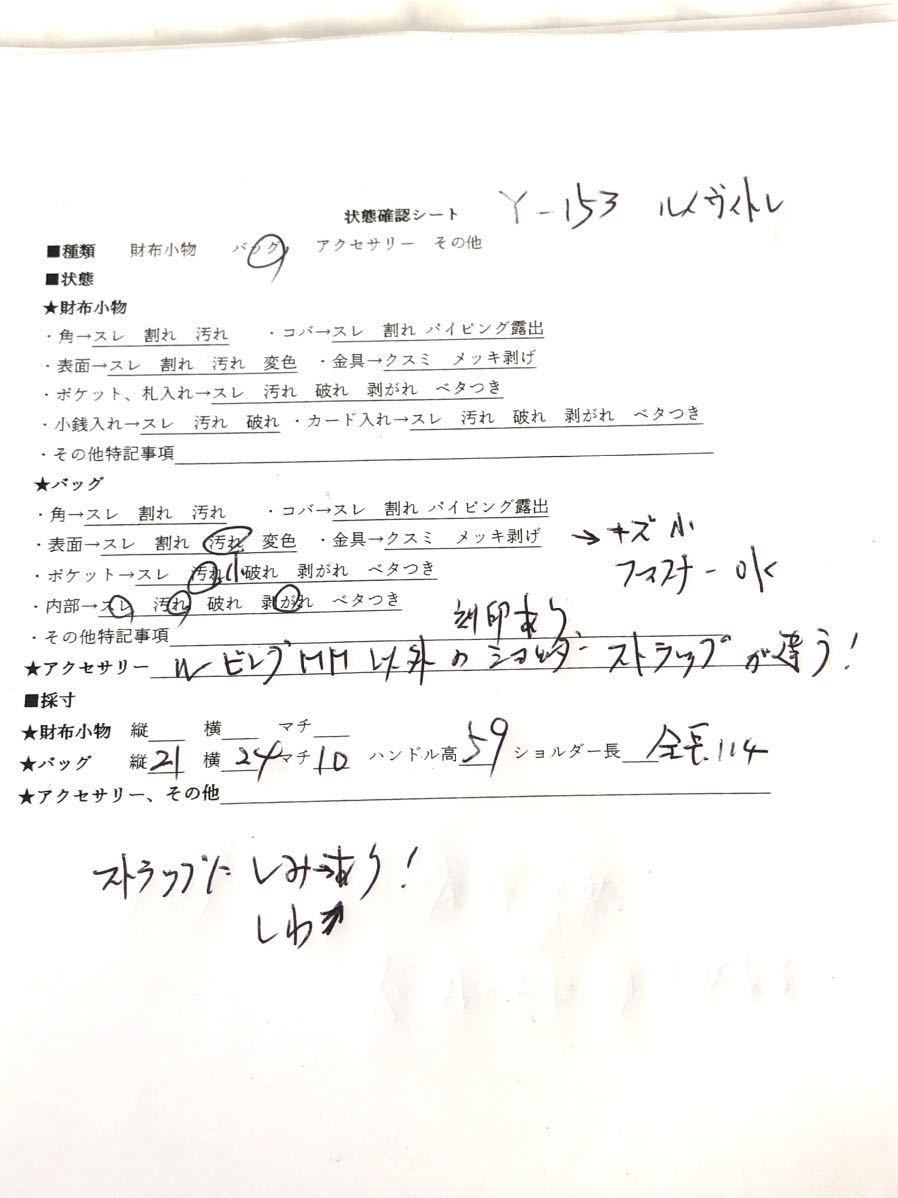 状態確認シート Y-153 ルイヴィトン
■種類 財布小物 バッグ アクセサリー その他
■状態
★財布小物
・角→スレ 割れ 汚れ ・コバ→スレ 割れ パイピング露出
・表面→スレ 割れ 汚れ 変色 ・金具→クスミ メッキ剥げ
・ポケット、札入れ→スレ 汚れ 破れ 剥がれ ベタつき
・小銭入れ→スレ 汚れ 破れ ・カード入れ→スレ 汚れ 破れ 剥がれ ベタつき
・その他特記事項
★バッグ
・角→スレ 割れ 汚れ ・コバ→スレ 割れ パイピング露出
・表面→スレ 割れ 汚れ 変色 ・金具→クスミ メッキ剥げ →キズ小
・ポケット→スレ 汚れ 小 破れ 剥がれ ベタつき ファスナーOK
・内部→スレ 汚れ 破れ 剥がれ ベタつき
・その他特記事項 刻印あり
★アクセサリー ルピングMM以外のショルダーストラップが違う!
■採寸
★財布小物 縦 横 マチ
★バッグ 縦21 横24 マチ10 ハンドル高59 ショルダー長 全長114
★アクセサリー、その他
ストラップにしみ→あり!
しわ